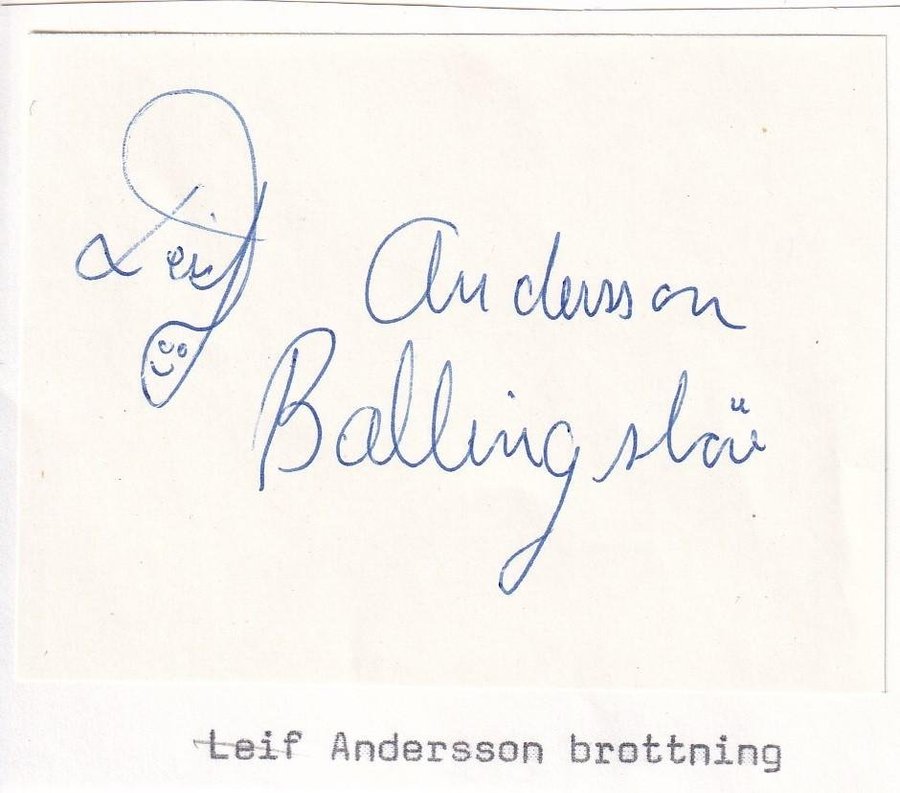 Leif Andersson
Ballingslöv
Leif Andersson brottning